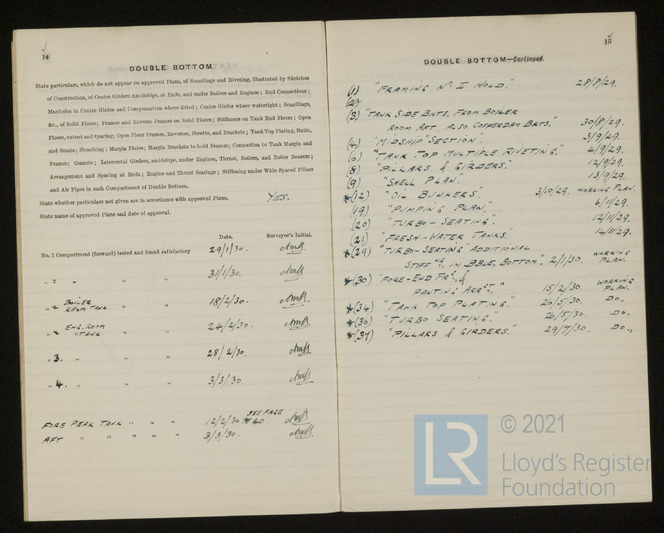 14
DOUBLE BOTTOM.
State particulars, which do not appear on approved Plans, of Scantlings and Riveting, illustrated by Sketches
of Construction, of Centre Girders Amidships, at Ends, and under Boilers and Engines; End Connections;
Manholes in Centre Girder and Compensation where fitted; Centre Girder where watertight; Scantlings,
&c., of Solid Floors; Frames and Reverse Frames on Solid Floors; Stiffeners on Tank End Floors; Open
Floors, extent and spacing; Open Floor Frames, Reverses, Struts, and Brackets; Tank Top Plating, Butts,
and Seams; Sheathing; Margin Plates; Margin Brackets to hold Frames; Connection to Tank Margin and
Frames; Gussets; Intercostal Girders, amidships, under Engines, Thrust, Boilers, and Boiler Bearers;
Arrangement and Spacing at Ends; Engine and Thrust Seatings; Stiffening under Wide Spaced Pillars
and Air Pipes in each Compartment of Double Bottom.
State whether particulars not given are in accordance with approved Plans. YES.
State name of approved Plans and date of approval.
Date. Surveyor's Initial.
No. 1 Compartment (forward) tested and found satisfactory 29/1/30.
" 2 " " " 31/1/30.
" 2 BOILER ROOM TANK. " " 18/2/30.
" 2 ENG. ROOM " TANK. " " 24/2/30.
" 3. " " " 28/2/30.
" 4. " " " 3/3/30.
FORE PEAK TANK " " " 12/2/30. * SEE PAGE 40.
AFT " " " " " 3/3/30.
15
DOUBLE BOTTOM—Continued.
(1) "FRAMING No I HOLD." 28/8/29.
(2)
(3) "TANK SIDE BKTS. FROM BOILER
ROOM AFT ALSO COFFERDAM BKTS." 30/8/29.
(4) "MIDSHIP SECTION." 3/9/29.
(6) "TANK TOP MULTIPLE RIVETING." 4/9/29.
(8) "PILLARS & GIRDERS." 12/9/29.
(9) "SHELL PLAN." 13/9/29.
*(12) "OIL BUNKERS." 3/10/29. WORKING PLAN.
(19) "PUMPING PLAN." 6/11/29.
(20) "TURBO-SEATING. 12/11/29.
(21) "FRESH-WATER TANKS. 14/11/29.
*(29) "TURBO-SEATING ADDITIONAL
STIFFG. IN DBLE. BOTTOM." 2/1/30. WORKING PLAN.
*(30) "FORE-END FRG. &
PANTING ARRGT." 15/2/30. WORKING PLAN.
*(34) "TANK TOP PLATING." 26/5/30. DO.
*(36) "TURBO SEATING." 26/5/30. DO.
*(37) "PILLARS & GIRDERS." 29/7/30. DO.
LR © 2021
Lloyd's Register
Foundation